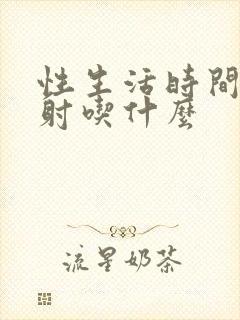 性生活時間
射喫什麽
流星奶茶